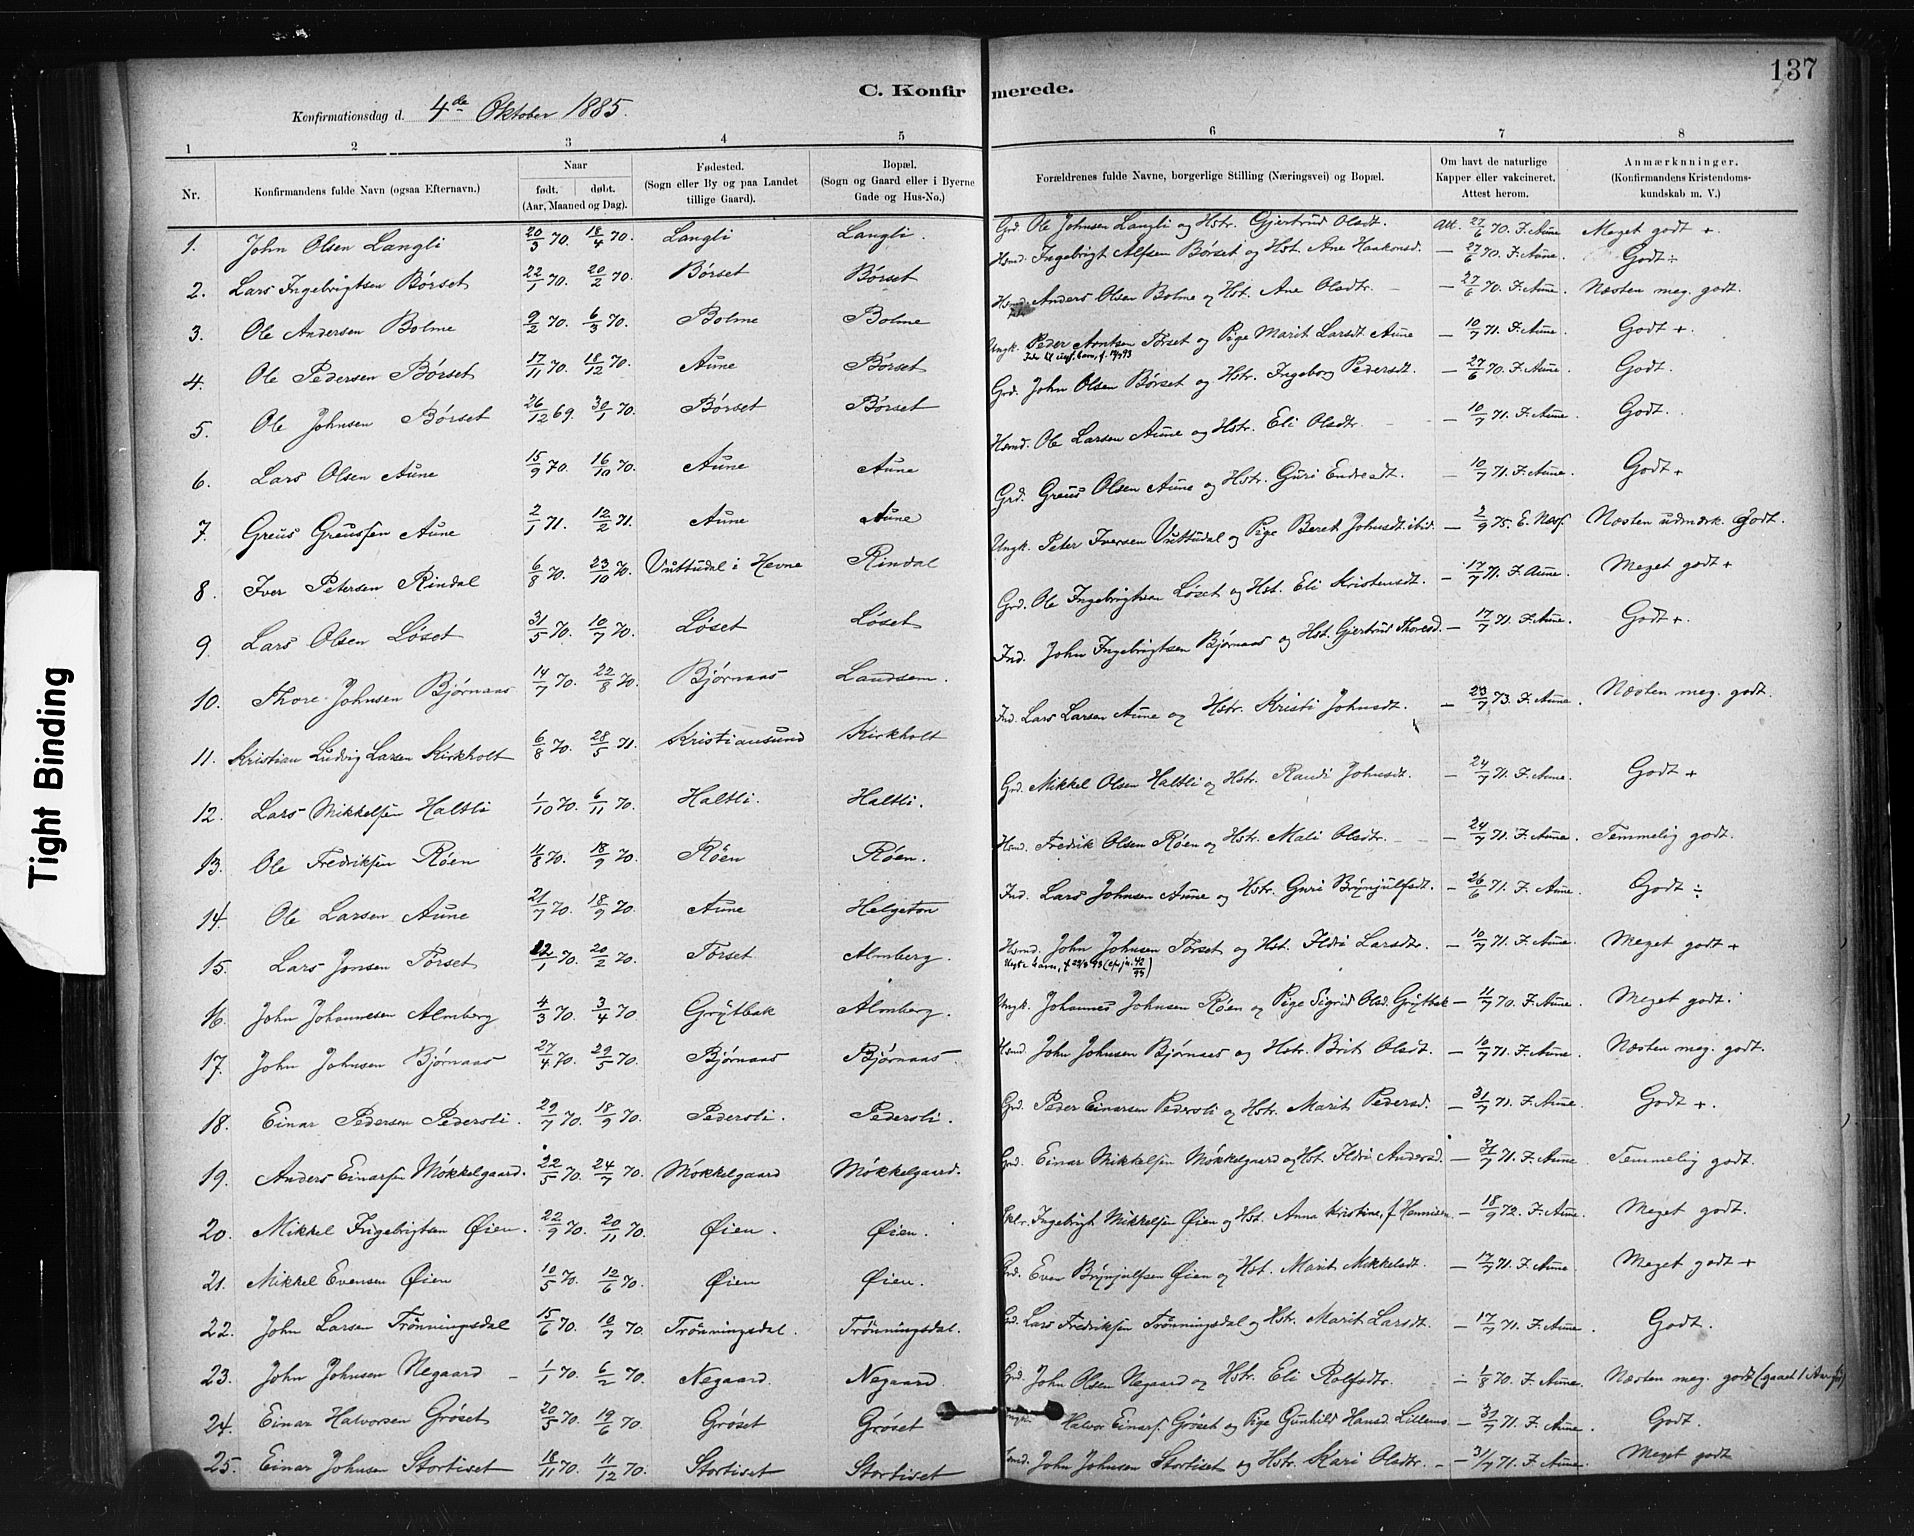 137
C. Konfirmerede.
Konfirmationsdag d. 4de Oktober 1885.
1 2 3 4 5 6 7 8
Nr. Konfirmandens fulde Navn (ogsaa Efternavn.) Naar født. døbt. (Aar, Maaned og Dag). Fødested. (Sogn eller By og paa Landet tillige Gaard). Bopæl. (Sogn og Gaard eller i Byerne Gade og Hus-No.) Forældrenes fulde Navne, borgerlige Stilling (Næringsvei) og Bopæl. Om havt de naturlige Kapper eller vakcineret. Attest herom. Anmærkninger. (Konfirmandens Kristendomskundskab m. V.)
1. John Olsen Langli 20/3 70. 18/4 70. Langli Langli. Grd. Ole Johnsen Langli og Hstr. Gjertrud Olsdt. Att. 27/6 70. F. Aune Meget godt +.
2. Lars Ingebrigtsen Børset 22/1 70. 20/2 70. Børset Børset Hsmd. Ingebrigt Alfsen Børset og Hst. Ane Haakonsd. — 27/6 70. F. Aune. Godt ÷
3. Ole Andersen Bolme 9/2 70. 6/3 70. Bolme Bolme Hsmd. Anders Olsen Bolme og Hst. Ane Olsdtr. — 27/6 70. F. Aune. Næsten meg. godt.
4. Ole Pedersen Børset 17/11 70. 18/12 70. Aune Børset Ungk. Peder Arntsen Torset og Pige Marit Larsdt Aune — 10/7 71. F. Aune. Godt +.
5. Ole Johnsen Børset 26/12 69. 30/1 70. Børset Børset Grd. John Olsen Børset og Hstr. Ingeborg Pedersdt. — 27/6 70. F. Aune. Godt.
6. Lars Olsen Aune 15/9 70. 16/10 70. Aune Aune Hsmd. Ole Larsen Aune og Hstr. Eli Olsdtr. — 10/7 71. F. Aune. Godt.
7. Greus Greussen Aune 2/1 71. 12/2 71. Aune Aune Grd. Greus Olsen Aune og Hstr. Guri Endresdt. — 10/7 71. F. Aune. Godt +
8. Iver Petersen Rindal 6/8 70. 23/10 70. Vuttudal i Hevne Rindal Ungk. Peter Iversen Vuttudal og Pige Beret Johnsdt. ibid. — 2/9 75. Næsten udmærk. godt.
9. Lars Olsen Løset 31/5 70. 10/7 70. Løset Løset Grd. Ole Ingebrigtsen Løset og Hst. Eli Kristensdt. — 17/7 71. F. Aune. Meget godt +
10. Thore Johnsen Bjørnaas 14/7 70. 22/8 70. Bjørnaas Landsem. Ind. John Ingebrigtsen Bjørnaas og Hst. Gjertrud Thoresd. — 17/7 71. F. Aune. Godt +.
11. Kristian Ludvig Larsen Kirkholt 6/8 70. 28/5 71. Kristiansund Kirkholt Ind. Lars Larsen Aune og Hstr. Kristi Johnsdt. — 23/7 73. F. Aune. Næsten meg. godt.
12. Lars Mikkelsen Haltli 1/10 70. 6/11 70. Haltli. Haltli. Grd. Mikkel Olsen Haltli og Hstr. Randi Johnsdt. — 24/7 71. F. Aune. Godt +
13. Ole Fredriksen Røen 11/8 70. 18/9 70. Røen Røen. Hsmd. Fredrik Olsen Røen og Hstr. Mali Olsdtr. — 24/7 71. F. Aune. Temmelig godt.
14. Ole Larsen Aune 21/7 70. 18/9 70. Aune Helgeton Ind. Lars Johnsen Aune og Hstr. Guri Brynjulfsdt. — 26/6 71. F. Aune. Godt ÷
15. Lars Jonsen Torset 22/1 70. 20/2 70. Torset Almberg. Husmd. John Johnsen Torset og Hst. Ildri Larsdtr. — 10/7 71. F. Aune. Meget godt +
16. John Johannesen Almberg 4/3 70. 3/4 70. Grytbak Almberg. Ungk. Johannes Johnsen Røen og Pige Sigrid Olsd. Grytbak — 11/7 70. F. Aune Meget godt.
17. John Johnsen Bjørnaas 27/4 70. 29/5 70. Bjørnaas Bjørnaas Hsmd John Johnsen Bjørnaas og Hstr. Brit Olsdt. — 10/7 71. F. Aune. Næsten meg. godt.
18. Einar Pedersen Pedersli. 29/7 70. 18/9 70. Pedersli. Pedersli. Grd. Peder Einarsen Pedersli og Hstr. Marit Pedersd. — 31/7 71. F. Aune Godt +.
19. Anders Einarsen Møkkelgaard. 22/5 70. 24/7 70. Møkkelgaard Møkkelgaard. Grd. Einar Mikkelsen Møkkelgaard og Hst. Ildri Andersd. — 31/7 71. F. Aune Temmelig godt.
20. Mikkel Ingebrigtsen Øien. 22/9 70. 20/11 70. Øien. Øien. Ingebrigt Mikkelsen Øien og Hst. Anna Kristine, f. — 18/9 72. F. Aune. Meget godt.
21. Mikkel Evensen Øien 10/5 70. 12/6 70. Øien Øien. Grd. Even Brynjulfsen Øien og Hst. Marit Mikkelsdt. — 17/7 71. F. Aune. Meget godt +
22. John Larsen Trønningsdal 15/6 70. 10/7 70. Trønningsdal. Trønningsdal. Grd. Lars Fredriksen Trønningsdal og Hstr. Marit Larsdt. — 17/7 71. F. Aune. Godt.
23. John Johnsen Negaard 1/1 70. 6/2 70. Negaard. Negaard. Grd. John Olsen Negaard og Hstr. Eli Rolfsdtr. — 1/8 70. F. Aune. Næsten meg. godt
24. Einar Halvorsen Grøset 20/5 70. 19/6 70. Grøset Grøset Halvor Einars. Grøset og Pige Gunhild Hansd. — 31/7 71. F. Aune. Godt.
25. Einar Johnsen Stortiset 18/11 70. 11/12 70. Stortiset Stortiset John Johnsen Stortiset og Hstr. Kari Olsdtr. — 31/7 71. F. Aune. Meget godt
Tight Binding